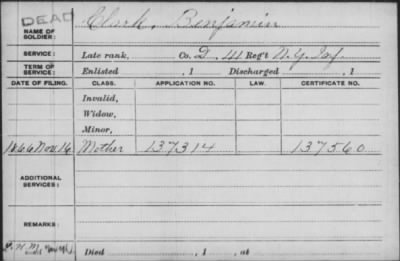 DEAD
NAME OF SOLDIER: Clark, Benjamin
SERVICE: Late rank, Co. D, 141 Reg't N.Y. Inf.
TERM OF SERVICE: Enlisted , 1 Discharged , 1
DATE OF FILING. CLASS. APPLICATION NO. LAW. CERTIFICATE NO.
Invalid,
Widow,
Minor,
1866 Nov. 16 Mother 137314 137560
ADDITIONAL SERVICES:
REMARKS:
Died , 1 , at